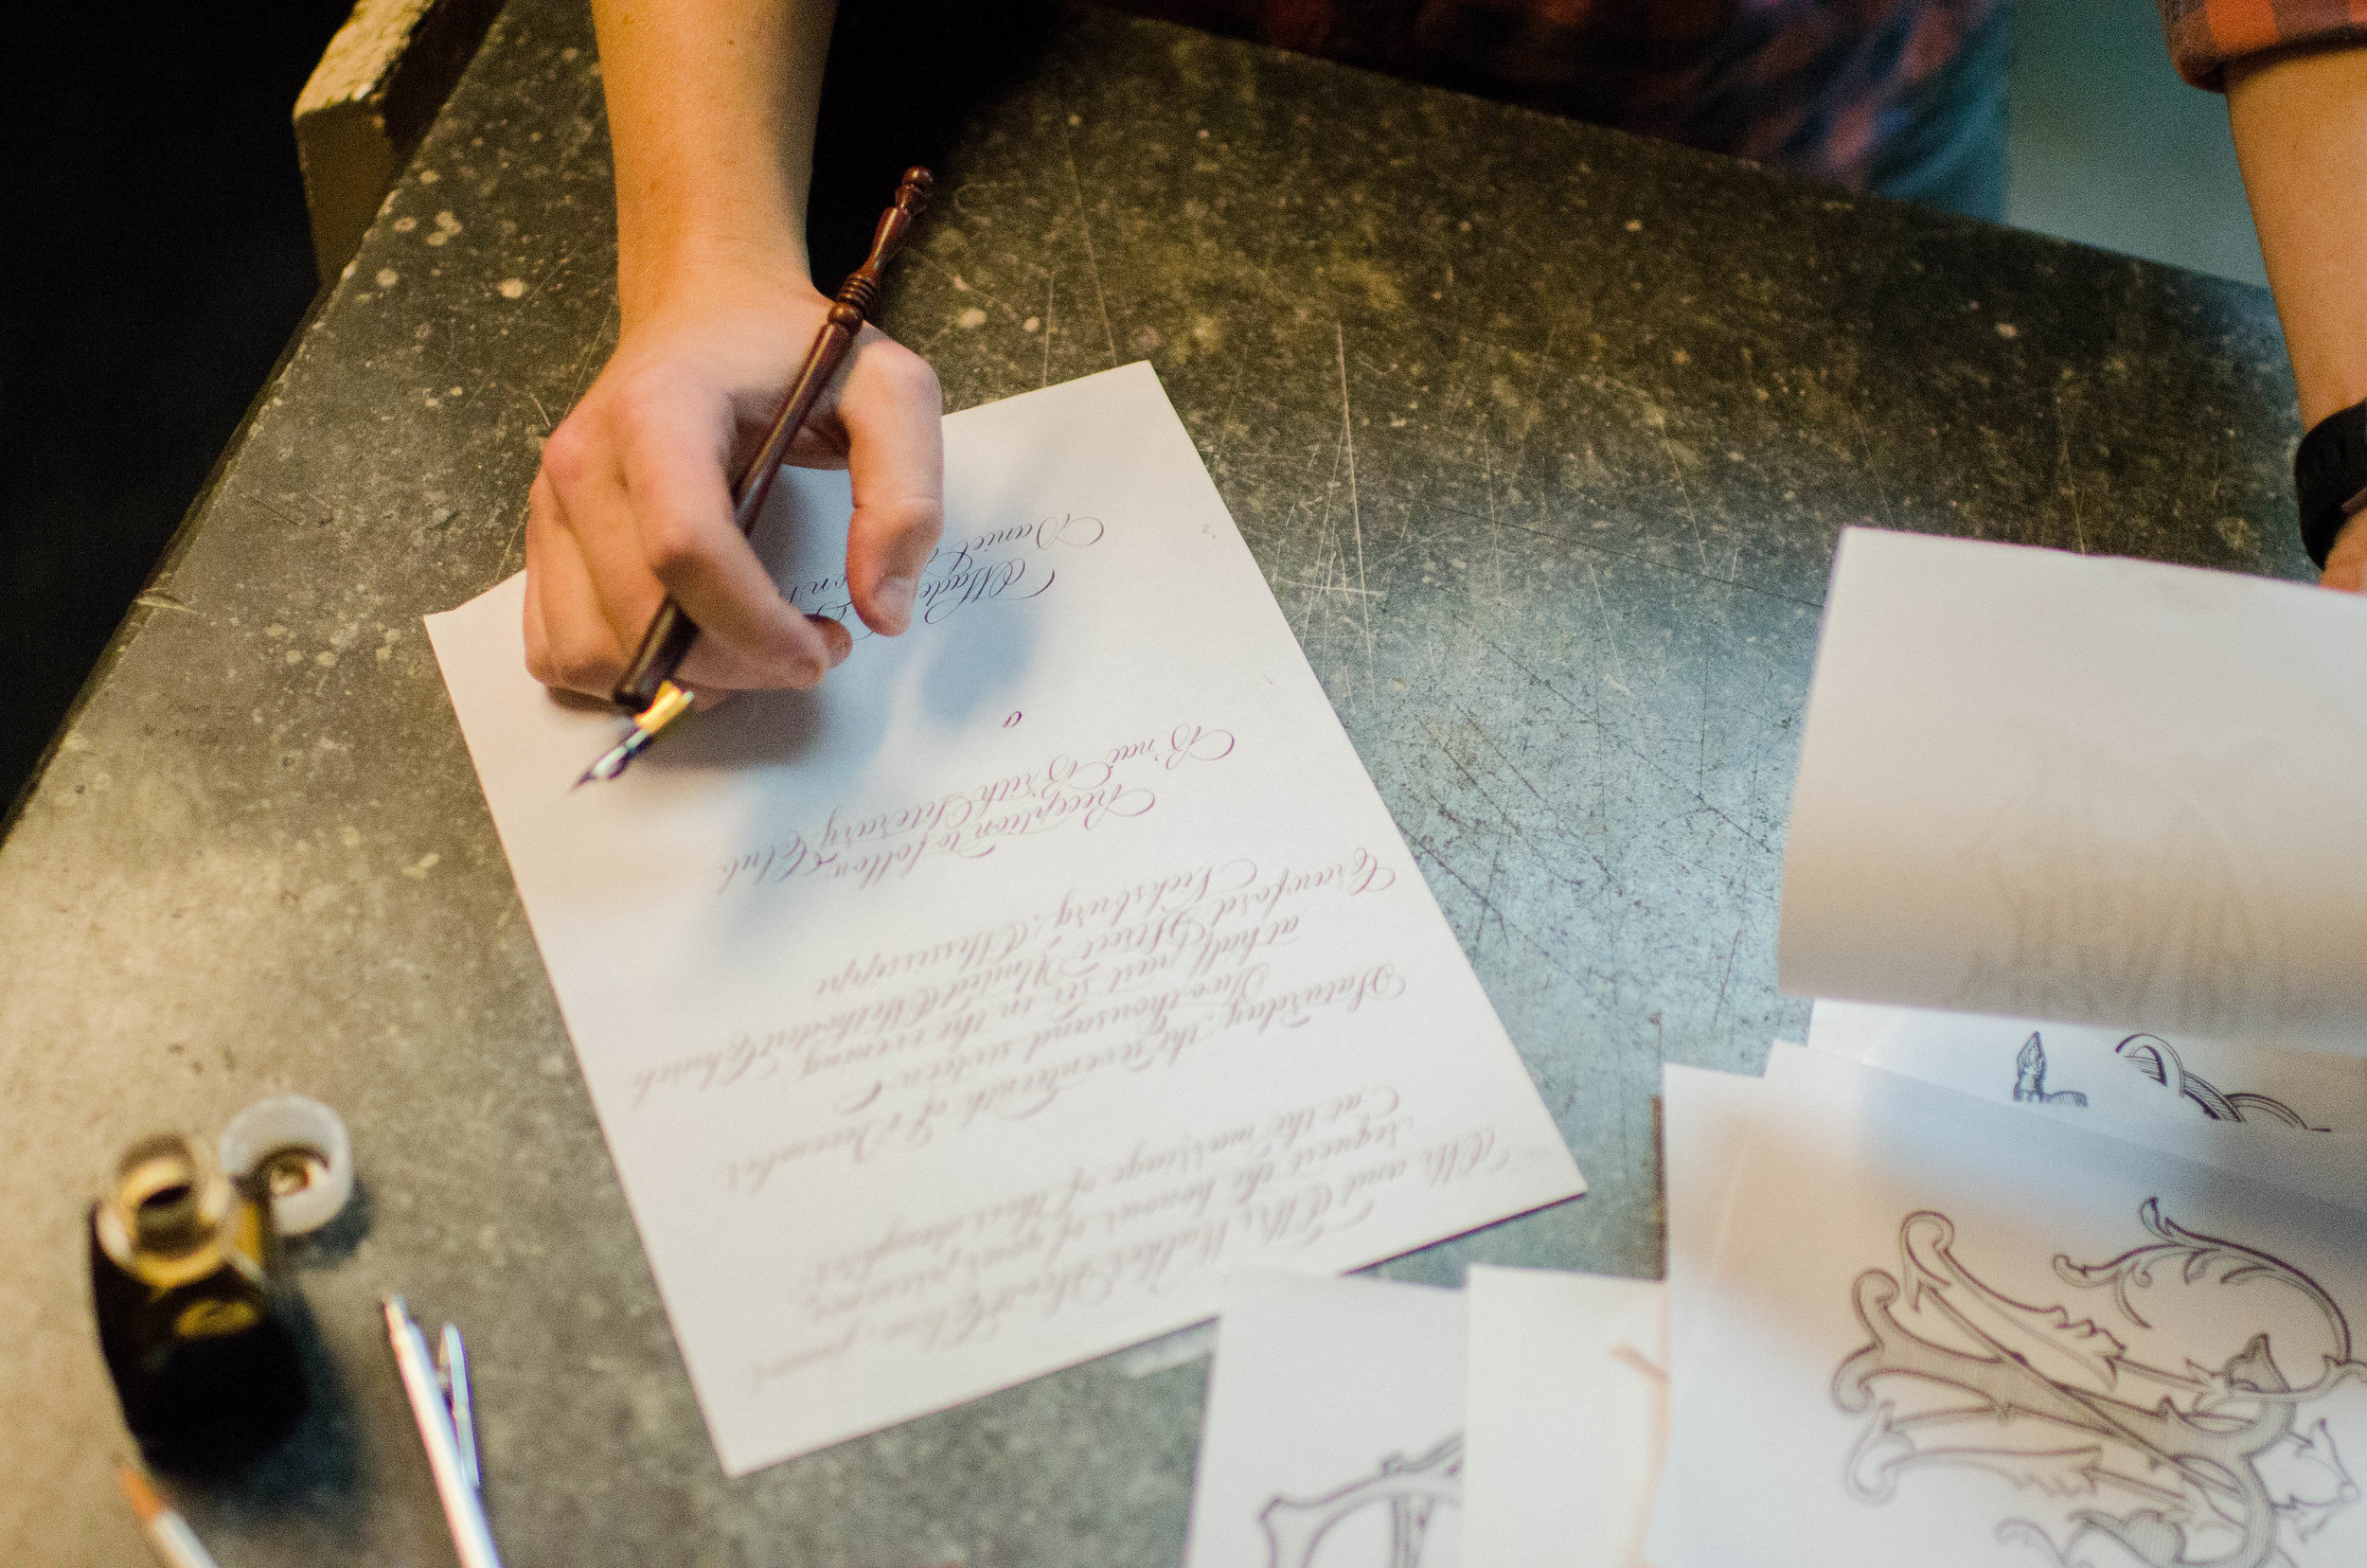 Mr. and Mrs. Walker
request the honour of your presence
at the marriage of their daughter
Saturday, the seventeenth of December
Two thousand sixteen
at half past six in the evening
Crawford Street United Methodist Church
Vicksburg, Mississippi
Reception to follow
B'nai B'rith Literary Club
o
Made
Daniel